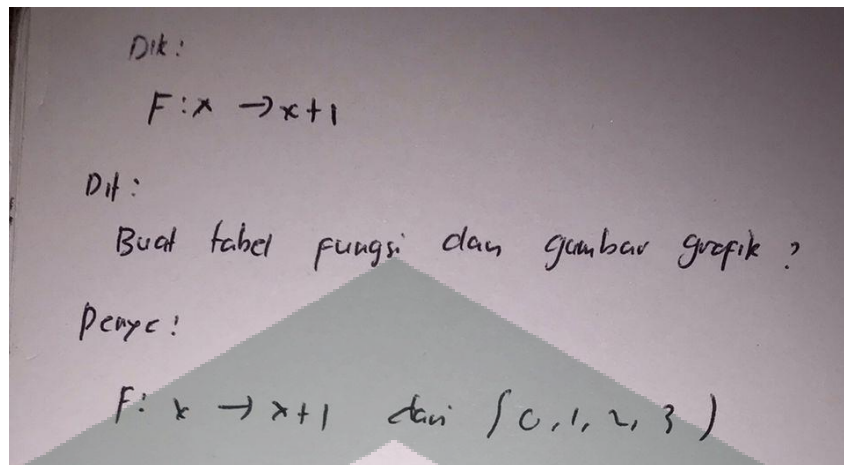 Dik:
F:x →x+1
Dit:
Buat tabel fungsi dan gambar grafik?
Penye:
F: x → x+1 dari {0,1,2,3}